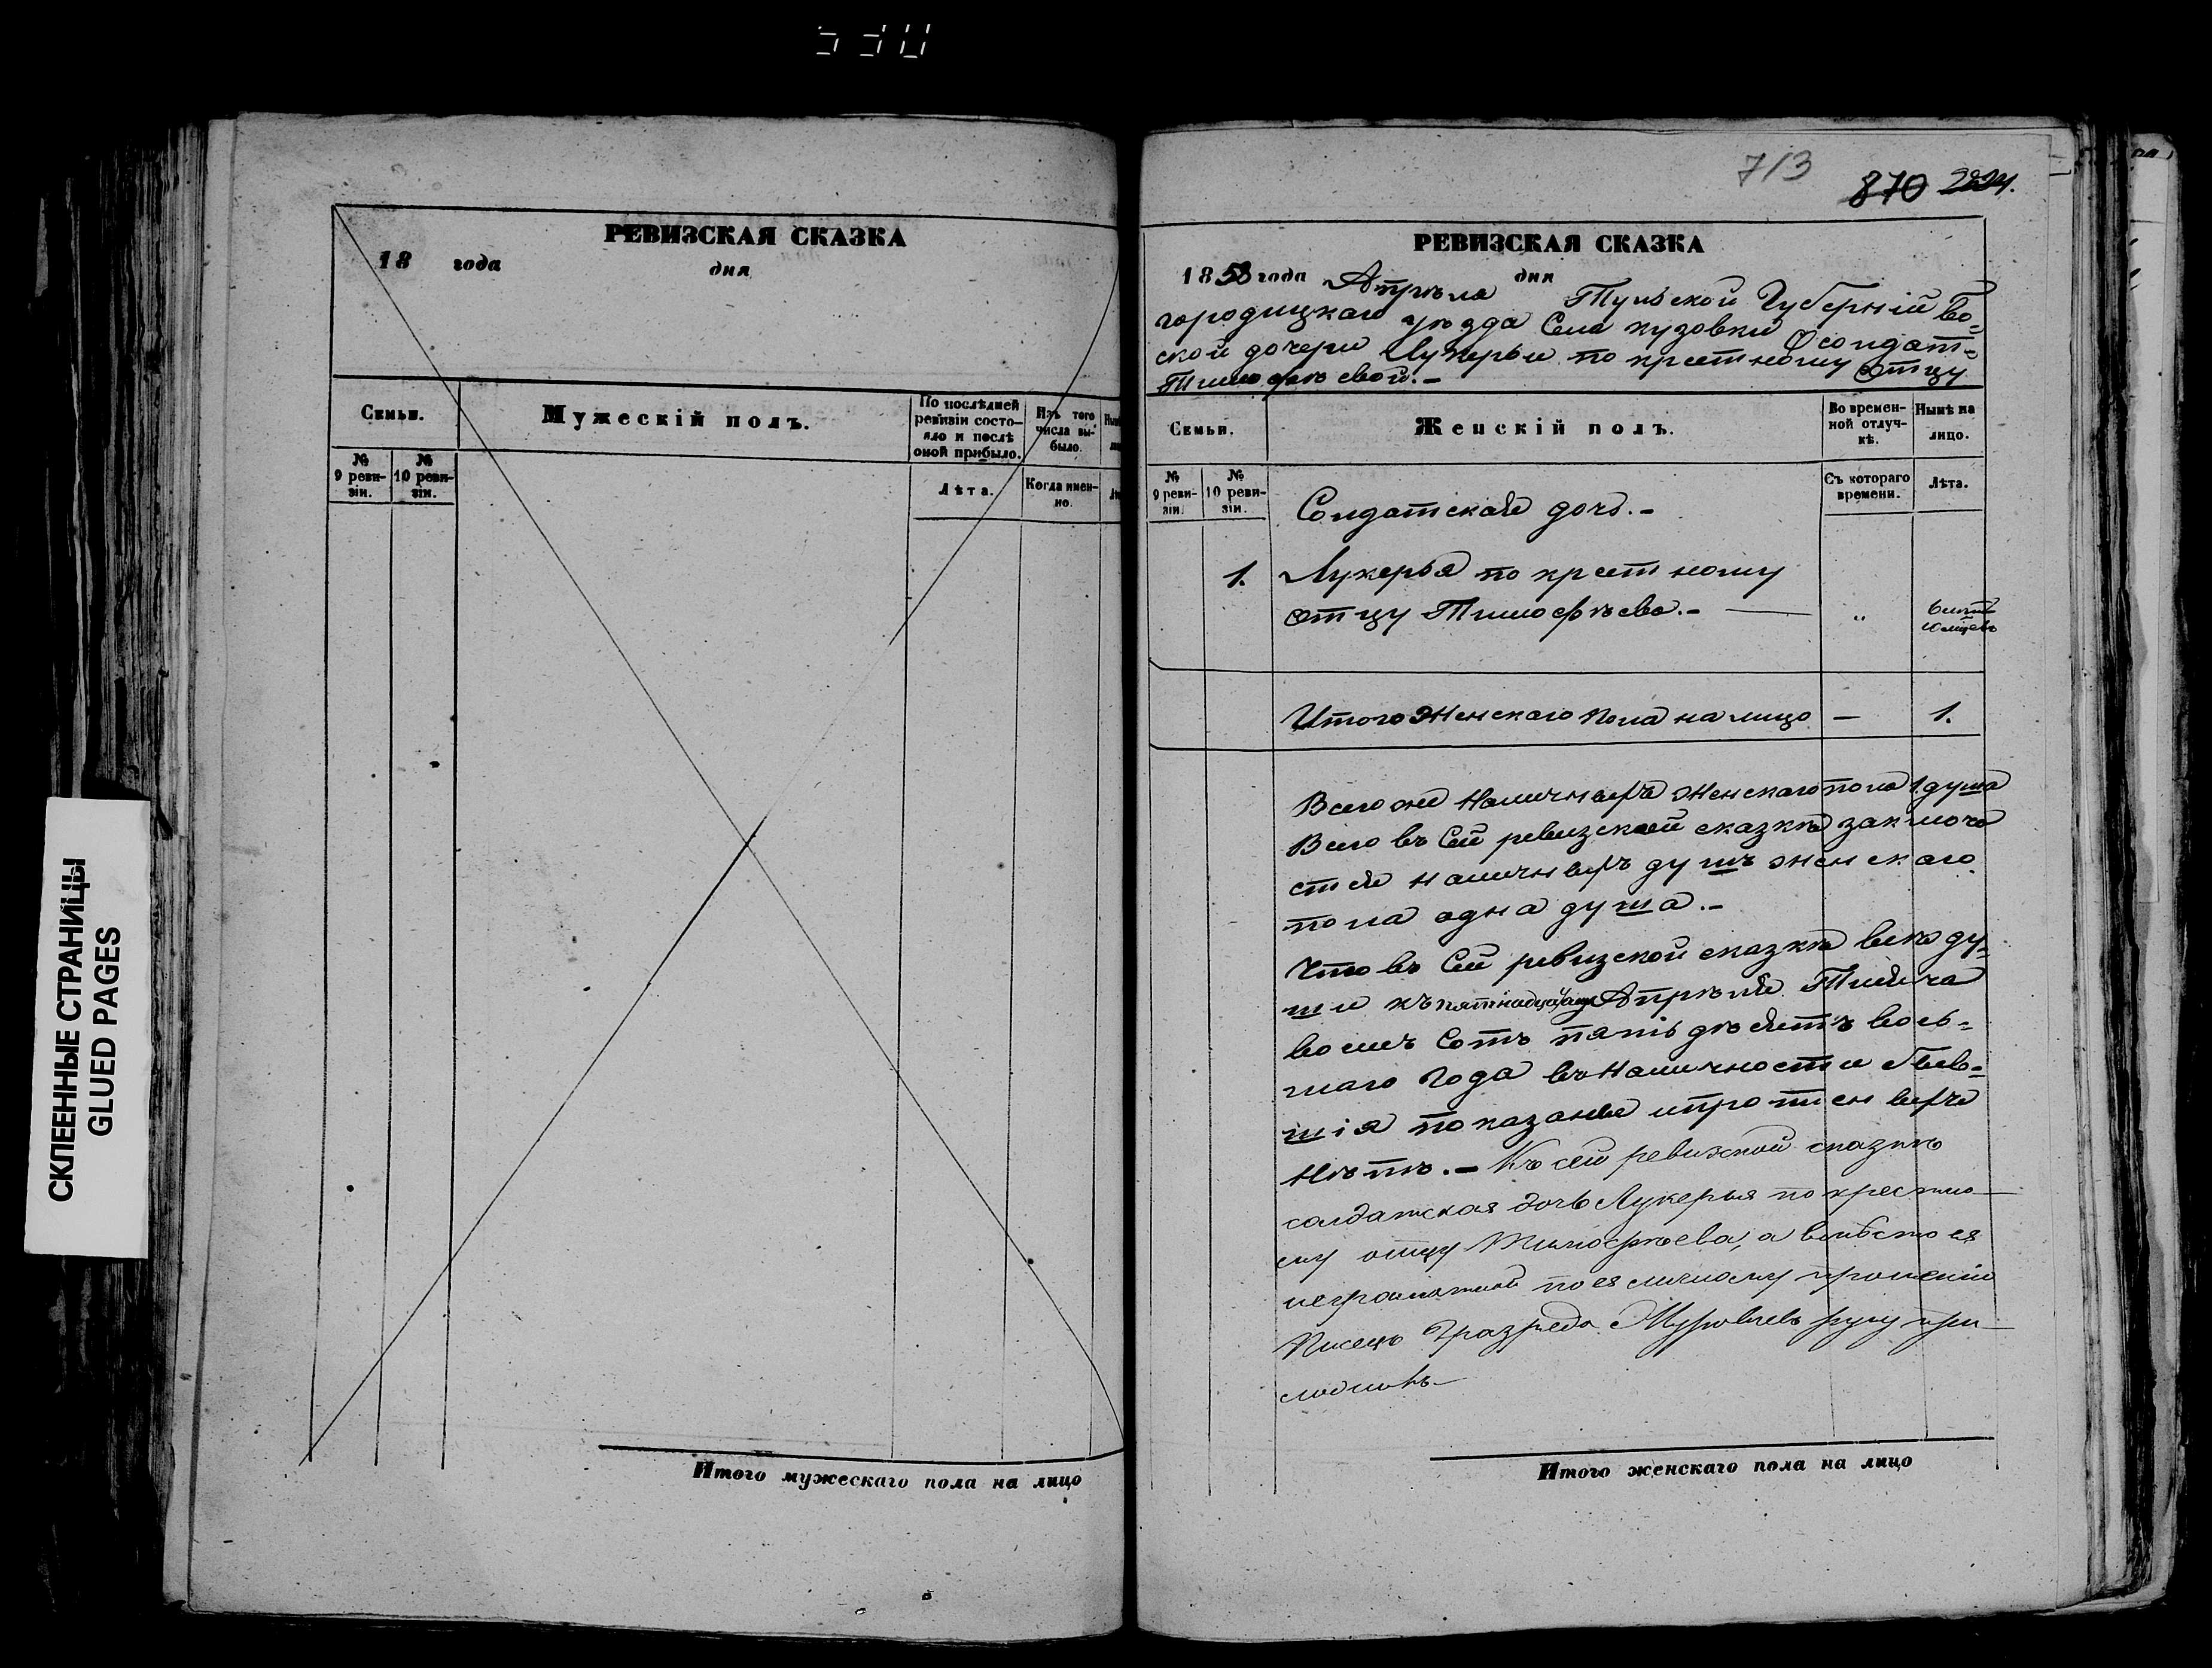 СКЛЕЕННЫЕ СТРАНИЦЫ
GLUED PAGES
РЕВИЗСКАЯ СКАЗКА
18 года дня
Семьи.
Мужескій полъ.
По послѣдней ревизіи состо-
яло и послѣ
оной прибыло.
Изъ того
числа вы-
было.
№
9 реви-
зіи.
№
10 реви-
зіи.
Лѣта.
Когда имен-
но.
Итого мужескаго пола на лицо
713
870
РЕВИЗСКАЯ СКАЗКА
1858 года Апрѣля дня Тульской Губерніи Бо-
городицкаго уѣзда Села Кузовки О солдат-
ской дочери Лукерьи по крестному Отцу
Тимофѣевой.-
Семьи.
Женскій полъ.
Во времен-
ной отлуч-
кѣ.
Нынѣ на
лицо.
№
9 реви-
зіи.
№
10 реви-
зіи.
Съ котораго
времени.
Лѣта.
Солдатская дочь.-
1. Лукерья по крестному
Отцу Тимофѣева.- „
Итого Женскаго пола на лицо — 1.
Всего же наличныхъ Женскаго пола 1 душа
Всего въ Сей ревизской сказкѣ заключа
ется наличныхъ душъ женскаго
пола одна душа.-
Что въ Сей ревизской сказкѣ всѣ ду-
ши къ пятнадцатому Апрѣля Тысяча
восемь Сотъ пятьдѣсятъ вось-
маго Года въ наличности быв-
шія показаны и прописныхъ
нѣтъ.- Къ сей ревизской сказкѣ
солдатская дочь Лукерья по крестно-
му отцу Тимофѣева, а вмѣсто ея
неграмотной по ея личному прошенію
Писецъ разряда руку при-
ложилъ
Итого женскаго пола на лицо